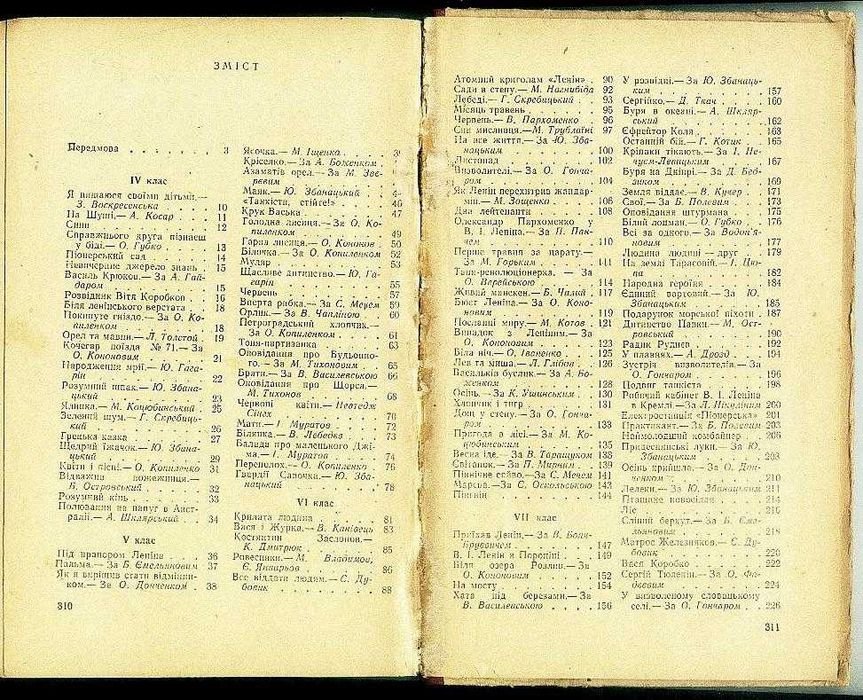 ЗМІСТ
Передмова . . . . . . . 3
IV клас
Я пишаюся своїми дітьми.—
З. Воскресенська . . . 10
На Шуші.— А. Косар . . 11
Сини . . . . . . . . 12
Справжнього друга пізнаєш
у біді.— О. Губко . . . 13
Піонерський сад . . . . 14
Невичерпне джерело знань . 15
Василь Крюков.— За А. Гай-
даром . . . . . . . 15
Розвідник Вітя Коробков . 16
Біля ленінського верстата . 18
Покинуте гніздо.— За О. Ко-
пиленком . . . . . . 18
Орел та мавпи.— Л. Толстой 19
Кочегар поїзда № 71.— За
О. Кононовим . . . . 21
Народження мрії.— Ю. Гага-
рін . . . . . . . . 22
Розумний шпак.— Ю. Збана-
цький . . . . . . . 23
Ялинка.— М. Коцюбинський . 25
Зелений шум.— Г. Скребиць-
кий . . . . . . . . 26
Грецька казка . . . . . 27
Щедрий їжачок.— Ю. Збана-
цький . . . . . . . 29
Квіти і пісні.— О. Копиленко 31
Відважна пожежниця.—
Б. Островський . . . . 32
Розумний кінь . . . . . 33
Полювання на папуг в Авст-
ралії.— А. Шклярський . 34
V клас
Під прапором Леніна . . . 36
Пальма.— За Б. Ємельяновим 37
Як я вирішив стати відмінни-
ком.— За О. Донченком . 38
310
Ясочка.— М. Іщенко . . .
Крісєлко.— За А. Боженком .
Азаматів орел.— За М. Зве-
рєвим
Маяк.— Ю. Збанацький . .
«Танкісте, стійте!» . . . 46
Крук Васька . . . . . . 47
Голодна лисиця.— За О. Ко-
пиленком . . . . . . 49
Гарна лисиця.— О. Кононов 50
Білочка.— За О. Копиленком 52
Муляр . . . . . . . . 53
Щасливе дитинство.— Ю. Га-
гарін . . . . . . . 55
Червень . . . . . . . 57
Вперта рибка.— За С. Мерем 59
Орлик.— За В. Чапліною . 60
Петроградський хлопчик.—
За О. Копиленком . . . 61
Тоня-партизанка . . . . 63
Оповідання про Будьонно-
го.— За М. Тихоновим . 65
Брати.— За В. Василевською 66
Оповідання про Щорса.—
М. Тихонов . . . . . 68
Червоні квіти.— Невтедж
Сінгх . . . . . . . 70
Мати.— І. Муратов . . . 72
Білянка.— В. Лебеїко . . 73
Балада про маленького Джі-
ма.— І. Муратов . . . 74
Переполох.— О. Копиленко . 76
Гвардії Савочка.— Ю. Зба-
нацький . . . . . . 78
VI клас
Крилата людина . . . . 81
Вася і Журка.— В. Канівець 83
Костянтин Заслонов.—
К. Дмитрюк . . . . . 85
Ровесники.— М. Владимов,
Є. Яншиєв . . . . . 86
Все віддати людям.— С. Ду-
бовик . . . . . . . 88
Атомний криголам «Ленін» . 90
Сади в степу.— М. Нагнибіда 92
Лебеді.— Г. Скребицький . 93
Місяць травень . . . . . 95
Червень.— В. Пархоменко . 96
Спи мисливця.— М. Трублаїні 97
На все життя.— За Ю. Зба-
нацьким . . . . . . 100
Листопад . . . . . . . 102
Визволителі.— За О. Гонча-
ром . . . . . . . . 104
Як Ленін перехитрив жандар-
мів.— М. Зощенко . . . 106
Два лейтенанти . . . . . 108
Олександр Пархоменко у
В. І. Леніна.— За П. Пан-
чем . . . . . . . . 110
Перше травня за парату.—
За М. Горьким . . . . 141
Танк-революціонерка.— За
О. Верейською . . . . 114
Живий манекен.— Б. Чалий . 117
Бюст Леніна.— За О. Коно-
новим . . . . . . . 119
Посланці миру.— М. Котов . 121
Випадок з Леніним.— За
О. Кононовим . . . . 123
Біла ніч.— О. Іваненко . . 125
Лев та миша.— Л. Глібов . 126
Васильків буслик.— За А. Бо-
женком . . . . . . . 128
Осінь.— За К. Ушинським . 130
Хлопчик і тигр . . . . . 131
Дощ у степу.— За О. Гонча-
ром . . . . . . . . 133
Пригода в лісі.— За М. Ко-
цюбинським . . . . . 135
Весна іде.— За В. Таращуком 138
Світанок.— За П. Мирним . 139
Північне сяйво.— За С. Мечем 141
Марсья.— За С. Оскольською 143
Пінгвін . . . . . . . 144
VII клас
Приїхав Ленін.— За В. Бонч-
Бруєвичем . . . . . . 147
В. І. Ленін в Пороніні . . 149
Біля озера Розлив.— За
О. Кононовим . . . . 152
На мосту . . . . . . . 154
Хата під березами.— За
В. Василевською . . . 156
У розвідці.— За Ю. Збанаць-
ким . . . . . . . . 157
Сергійко.— Д. Ткач . . . 160
Буря в океані.— А. Шкляр-
ський . . . . . . . 162
Єфрейтор Коля . . . . . 163
Останній бій.— Г. Котик . 165
Кріпаки тікають.— За І. Не-
чуєм-Левицьким . . . . 167
Буря на Дніпрі.— За Д. Бед-
зиком . . . . . . . 169
Земля віддає.— В. Кучер . 171
Свої.— За Б. Полевим . . 173
Оповідання штурмана . . . 175
Білий лоцман.— О. Губко . 176
Всі за одного.— За Водоп'я-
новим . . . . . . . 177
Людина людині — друг . . 179
На землі Тарасовій.— І. Цю-
па . . . . . . . . 182
Народна героїня . . . . 184
Єдиний вартовий.— За Ю.
Збанацьким . . . . . 185
Подарунок морської піхоти . 187
Дитинство Павки.— М. Ост-
ровський . . . . . . 190
Радик Руднєв . . . . . 192
У плавнях.— А. Дрозд . . 194
Зустріч визволителів.— За
О. Гончаром . . . . . 196
Подвиг танкіста . . . . 198
Робочий кабінет В. І. Леніна
в Кремлі.— За Л. Нікуліним 200
Електростанція «Піонерська» 201
Практикант.— За Б. Полевим 203
Наймолодший комбайнер . . 206
Придеснянські луки.— За Ю.
Збанацьким . . . . . 208
Осінь прийшла.— За О. Дон-
ченком . . . . . . . 210
Лелеки.— За Ю. Збанацьким 211
Пташине новосілля . . . 214
Ліс . . . . . . . . 216
Сліпий беркут.— За Б. Єме-
льяновим . . . . . . 218
Матрос Железняков.— С. Ду-
бовик . . . . . . . 220
Вася Коробко . . . . . 222
Сергій Тюленін.— За О. Фа-
дєєвим . . . . . . . 224
У визволеному словацькому
селі.— За О. Гончаром . . 226
311